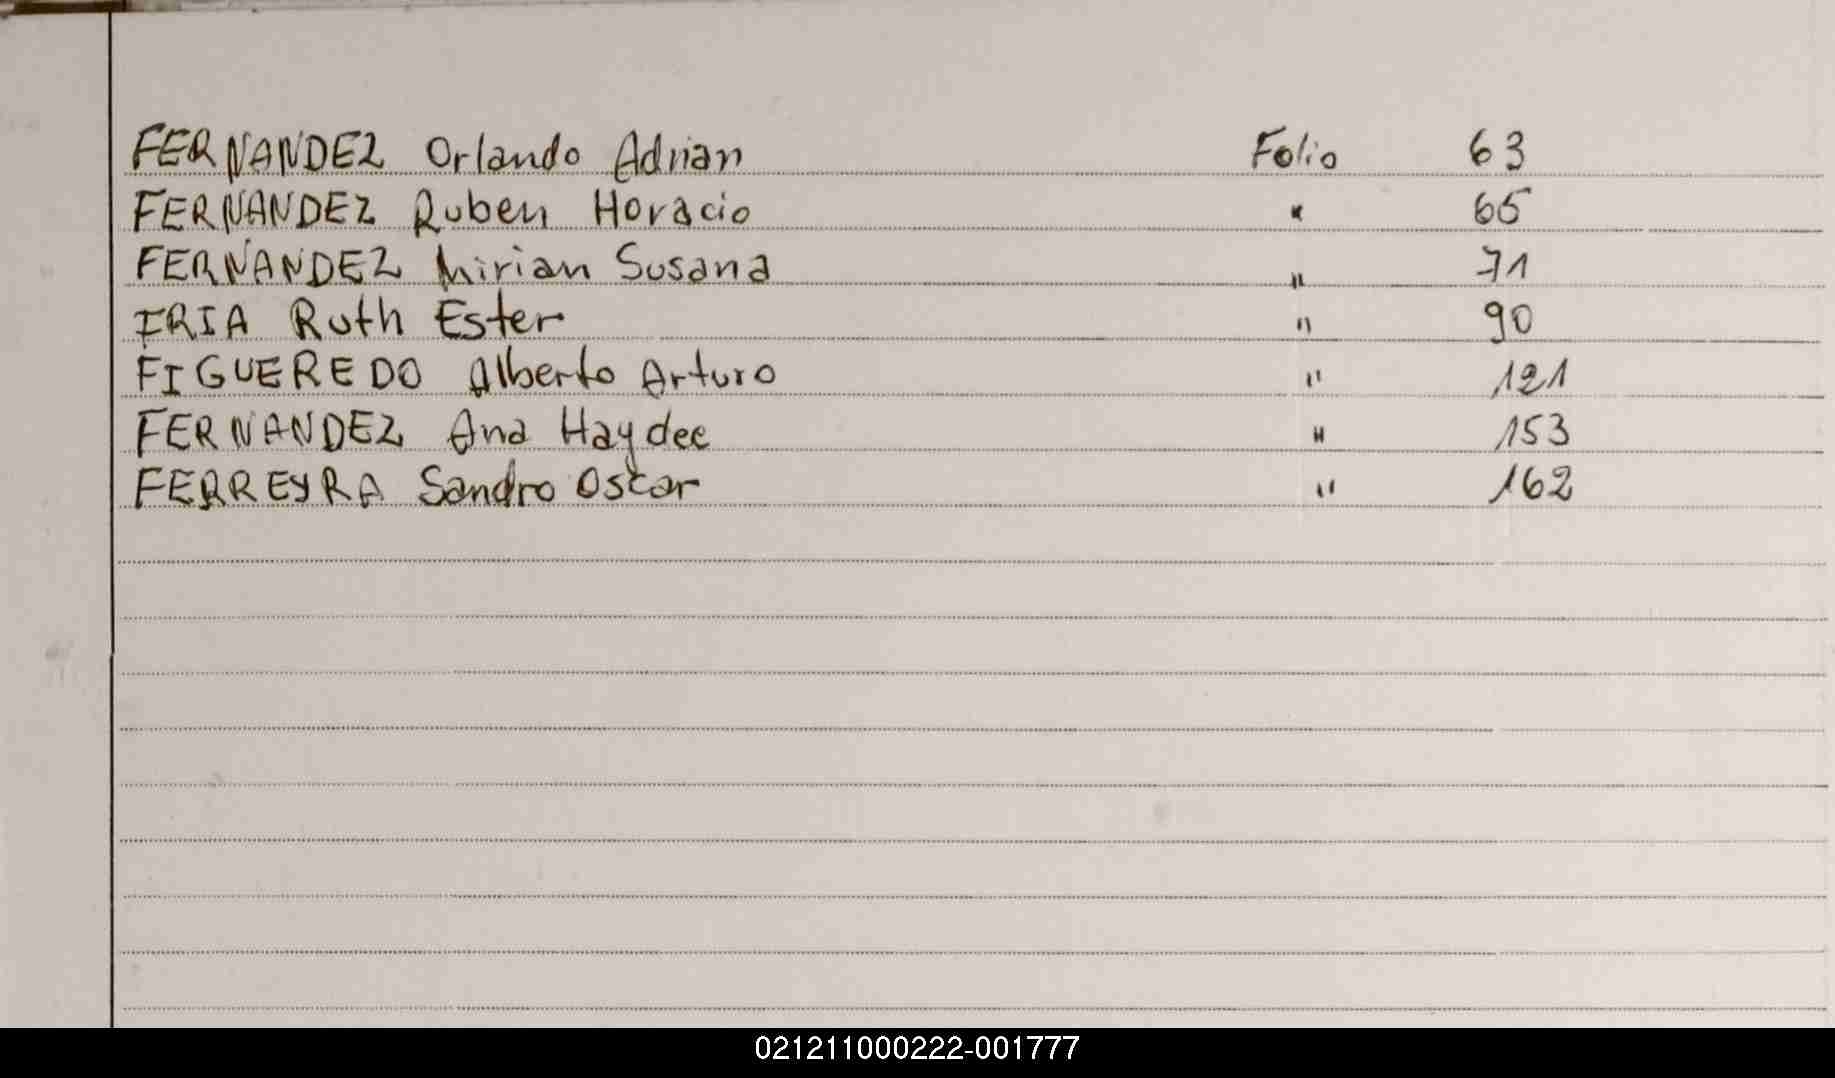 FERNANDEZ Orlando Adrian Folio 63
FERNANDEZ Ruben Horacio " 65
FERNANDEZ Mirian Susana " 71
FRIA Ruth Ester " 90
FIGUEREDO Alberto Arturo " 121
FERNANDEZ Ana Haydee " 153
FERREYRA Sandro Oscar " 162
021211000222-001777